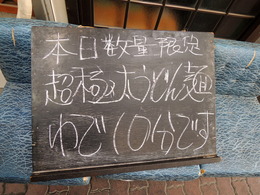 本日数量限定
超極太うどん麺
ゆで10分です